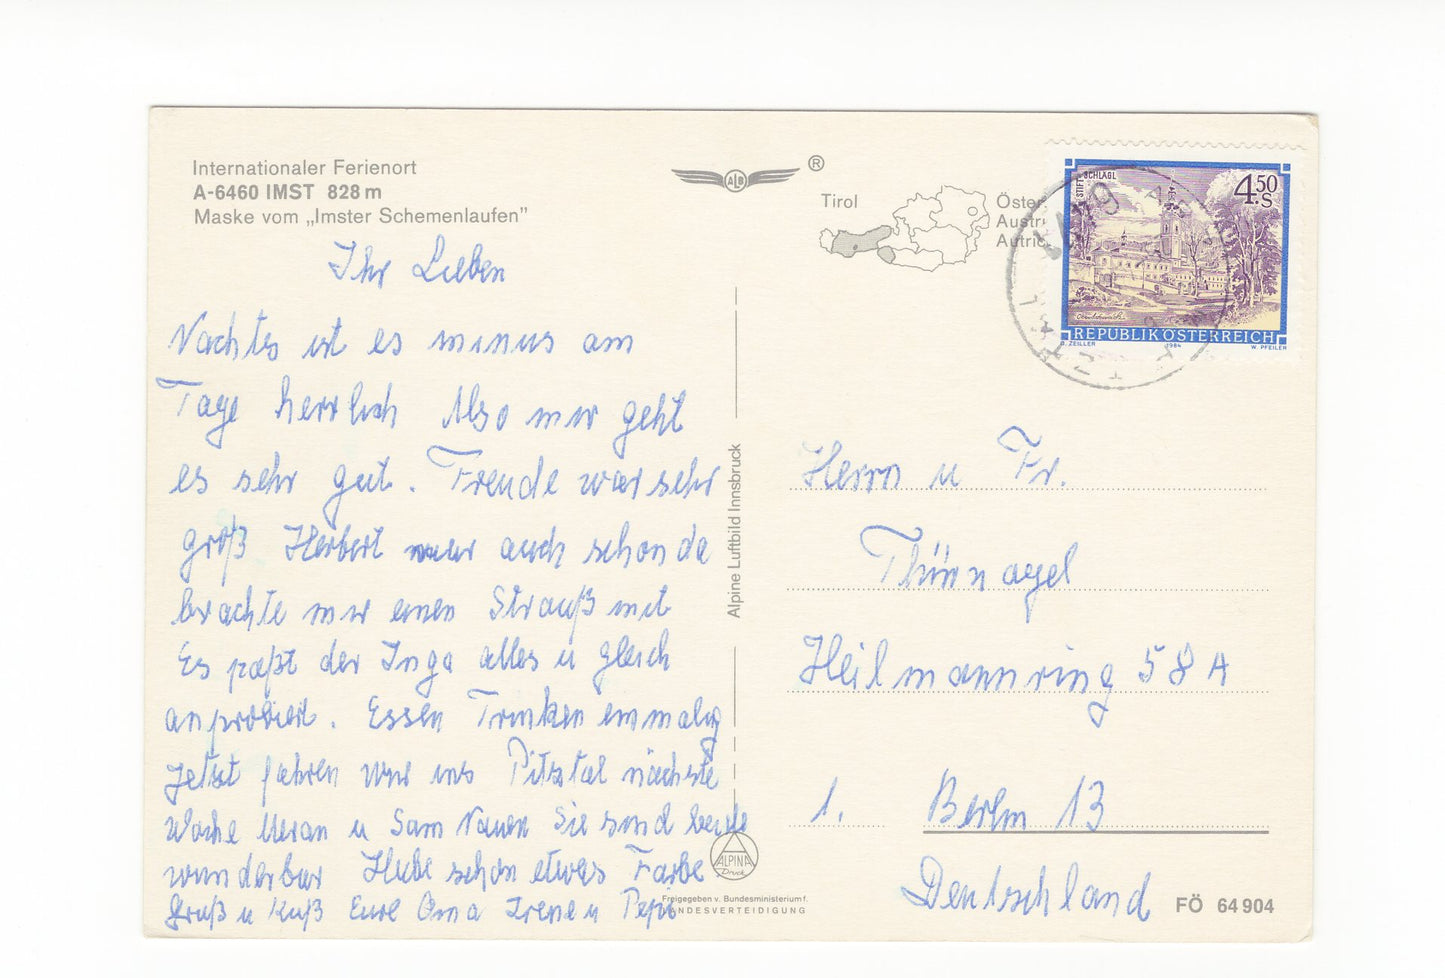 Internationaler Ferienort
A-6460 IMST 828 m
Maske vom „Imster Schemenlaufen”
ALB
®
Tirol
Öster
Austri
Autric
STIFT SCHLÄGL
4.50 S
REPUBLIK ÖSTERREICH
O. ZEILLER 1984 W. PFEILER
Ihr Lieben
Nachts ist es minus am
Tage herrlich Also mir geht
es sehr gut. Freude war sehr
groß Herbert war auch schon da
brachte mir einen Strauß mit
Es paßt der Inga alles u gleich
anprobiert. Essen Trinken einmalig
Jetzt fahren wir ins Pitztal nächste
Woche Meran u Sam Nauen Sie sind beide
wunderbar Habe schon etwas Farbe
Gruß u Kuß Eure Oma Irene u Pepi
Alpine Luftbild Innsbruck
ALPINA
Druck
Freigegeben v. Bundesministerium f.
LANDESVERTEIDIGUNG
Herrn u Fr.
Thünnagel
Heilmannring 58 A
1. Berlin 13
Deutschland
FÖ 64 904